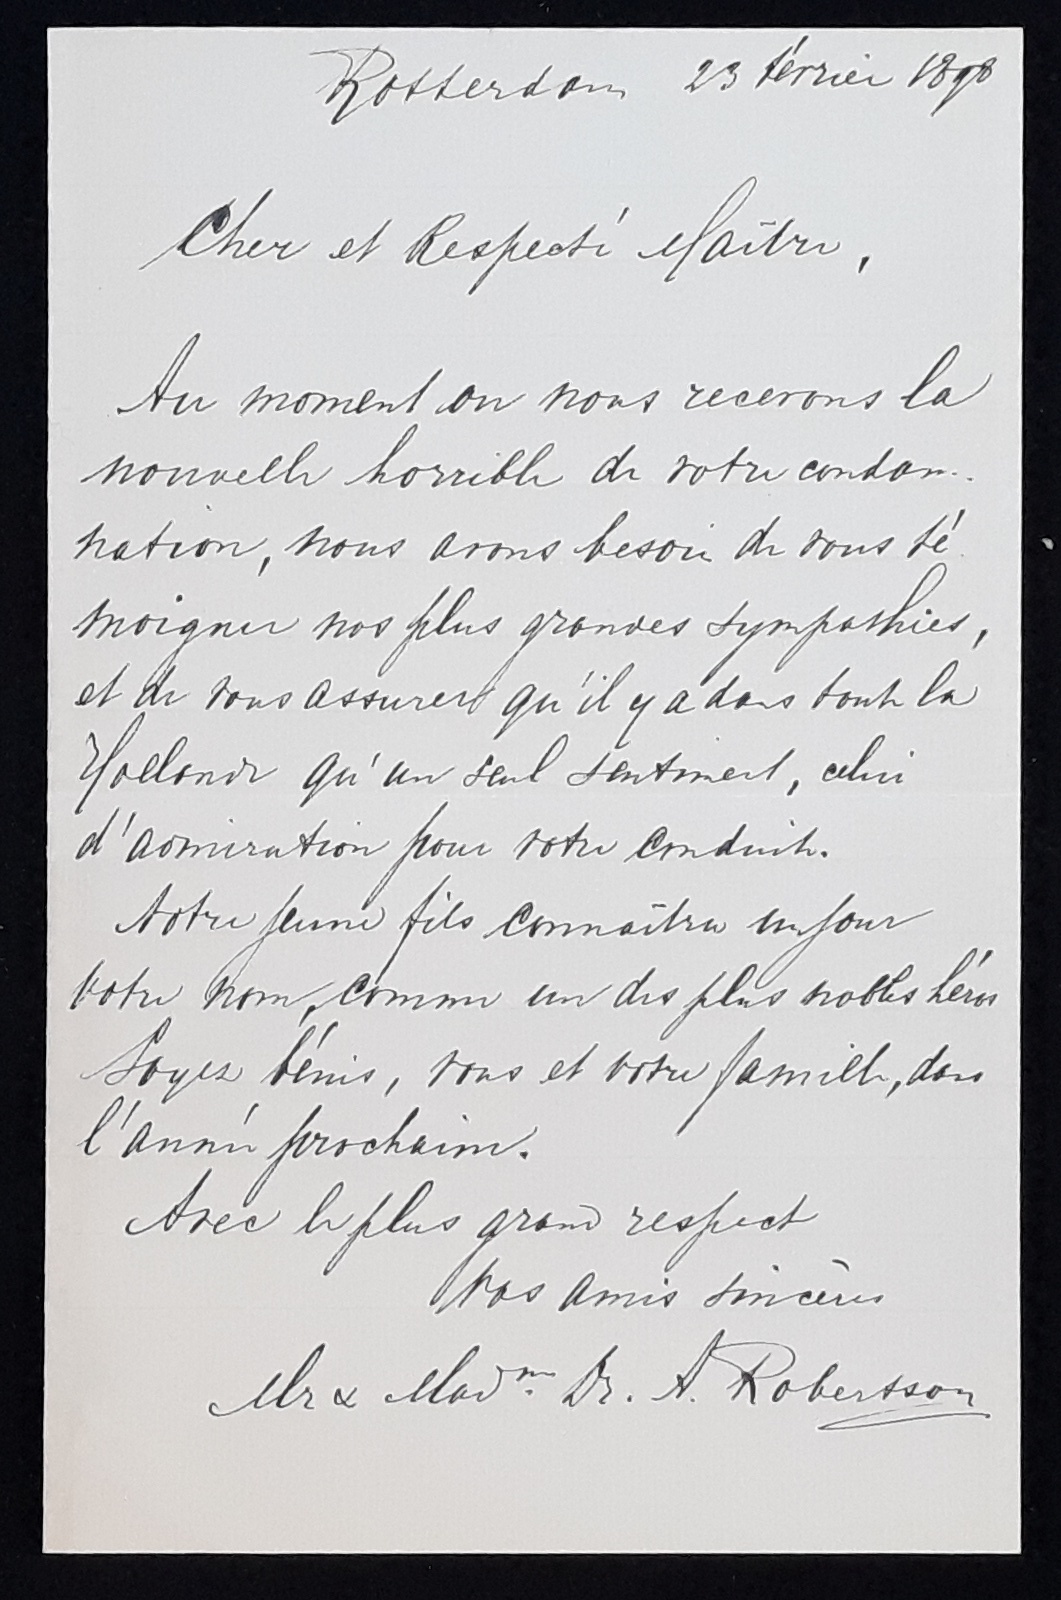 Rotterdam 23 février 1898
Cher et Respecté Maître,
Au moment ou nous recevons la
nouvelle horrible de votre condam-
nation, nous avons besoin de vous té
moigner nos plus grandes sympathies,
et de vous assurer qu'il y a dans toute la
Hollande qu'un seul sentiment, celui
d'admiration pour votre conduite.
Notre jeune fils connaîtra un jour
votre nom, comme un des plus nobles héros
Soyez bénis, vous et votre famille, dans
l'année prochaine.
Avec le plus grand respect
Vos amis sincères
Mr & Madme. Dr. A. Robertsson